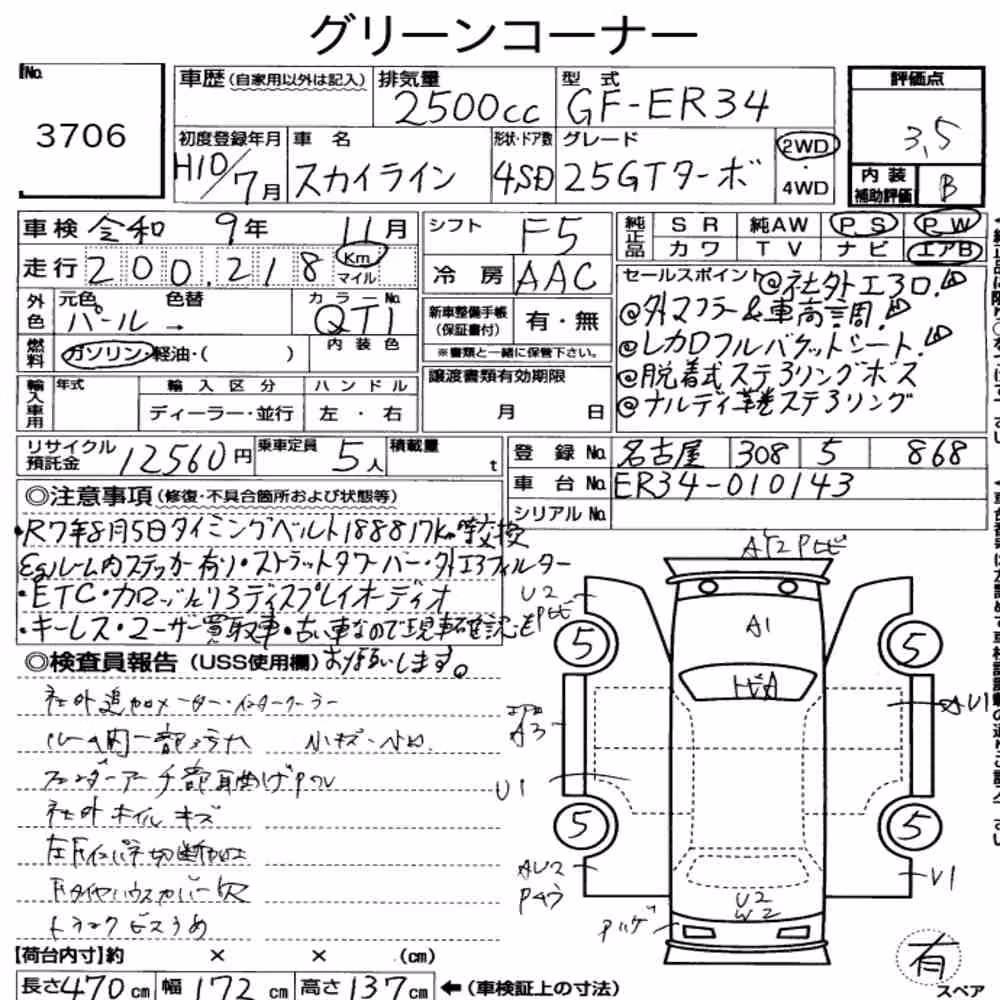 グリーンコーナー
No. 3706
車歴(自家用以外は記入)
排気量 2500cc
型式 GF-ER34
評価点 3,5
初度登録年月 H10/7月
車名 スカイライン
形状・ドア数 4SD
グレード 25GTターボ
2WD・4WD
内装補助評価 B
車検 令和 9年 11月
シフト F5
純正品 SR 純AW PS PW
カワ TV ナビ エアB
走行 200,218 Km マイル
冷房 AAC
外色 元色 パール → 色替
カラーNo. QT1
内装色
新車整備手帳(保証書付) 有・無
※書類と一緒に保管下さい。
燃料 ガソリン・軽油・( )
輸入車用 年式 輸入区分 ディーラー・並行 ハンドル 左・右
譲渡書類有効期限 月 日
セールスポイント @社外エアロ!
@外マフラー&車高調!
@レカロフルバケットシート!
@脱着式ステアリングボス
@ナルディ革巻ステアリング
リサイクル預託金 12560円
乗車定員 5人
積載量 t
登録No. 名古屋 308 5 868
車台No. ER34-010143
シリアルNo.
◎注意事項(修復・不具合箇所および状態等)
・R7年8月5日タイミングベルト188817km時交換
Egルーム内ステッカー有り・ストラットタワーバー・外エアフィルター
・ETC・カロッツェリアディスプレイオーディオ
・キーレス・ユーザー買取車・古い車なので現車確認を
お願いします。
◎検査員報告(USS使用欄)
社外追加メーター・インタークーラー
ルーム内一部ヨゴレ 小キズ・ヘコ
フェンダーアーチ部耳曲げ
社外ホイルキズ
切断加工
タイヤハウスカバー欠
トランクビスうめ
A1
U2
5
5
A3
AU1
U1
5
5
AU2
U1
U2
W2
有
スペア
【荷台内寸】約 × × (cm)
長さ470cm 幅172cm 高さ137cm ←(車検証上の寸法)